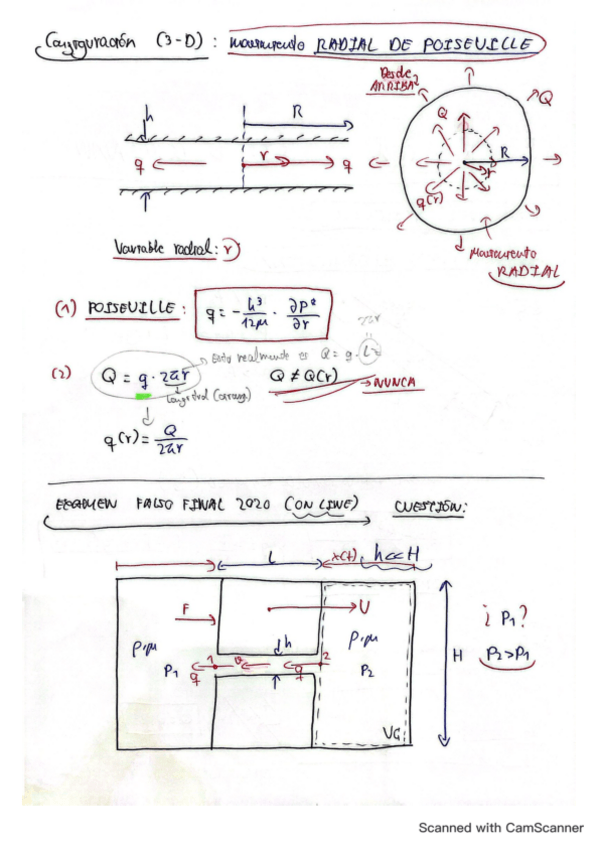 Configuración (3-D) : movimiento RADIAL DE POISEUILLE
Desde
ARRIBA
h
R
Q
Q
q
r
q
R
r
q(r)
Movimiento
RADIAL
Variable radial: r
(1) POISEUILLE : q = - h³/12μ · ∂P*/∂r
2πr
Esto realmente es Q = q · L
(2) Q = q · 2πr
Q ≠ Q(r) → NUNCA
Longitud
q(r) = Q/2πr
EXAMEN FALSO FINAL 2020 (ON LINE) CUESTIÓN:
L
x(t)
h<<H
F
U
h
ρ,μ
ρ,μ
P1
1
2
q
q
P2
H
VC
¿ P1?
P2>P1
Scanned with CamScanner